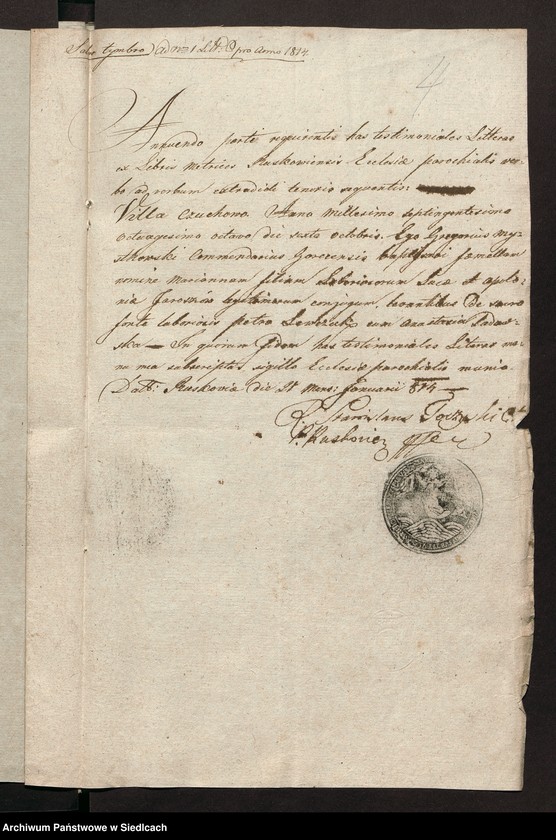 Salvo tymbro ad Nr 1 Litt. D pro Anno 1814.
4
Annuendo parti requirentis has testimoniales Litteras
ex Libris Metrices Ruskowiensis Ecclesiæ parochialis ver-
bo ad verbum extradidi tenoris sequentis:
Villa Czuchono. Anno Millesimo septingentesimo
octuagesimo octavo die sexto octobris. Ego Gregorius My-
szkowski Commendarius Gorcensis baptisavi fæmellam
nomine Mariannam filiam Laboriosorum Lucæ et Apolo-
nia Jaroszow legitimorum conjugum. levantibus de sacro
fonte laborioso Petro cum Anastasia Sadow-
ska — In quorum fidem has testimoniales Literas ma-
nu mea subscriptas sigillo Ecclesiæ parochialis munio.
Datt: Ruskoviæ die 21 Mens: Januarii 814
Stanislaus